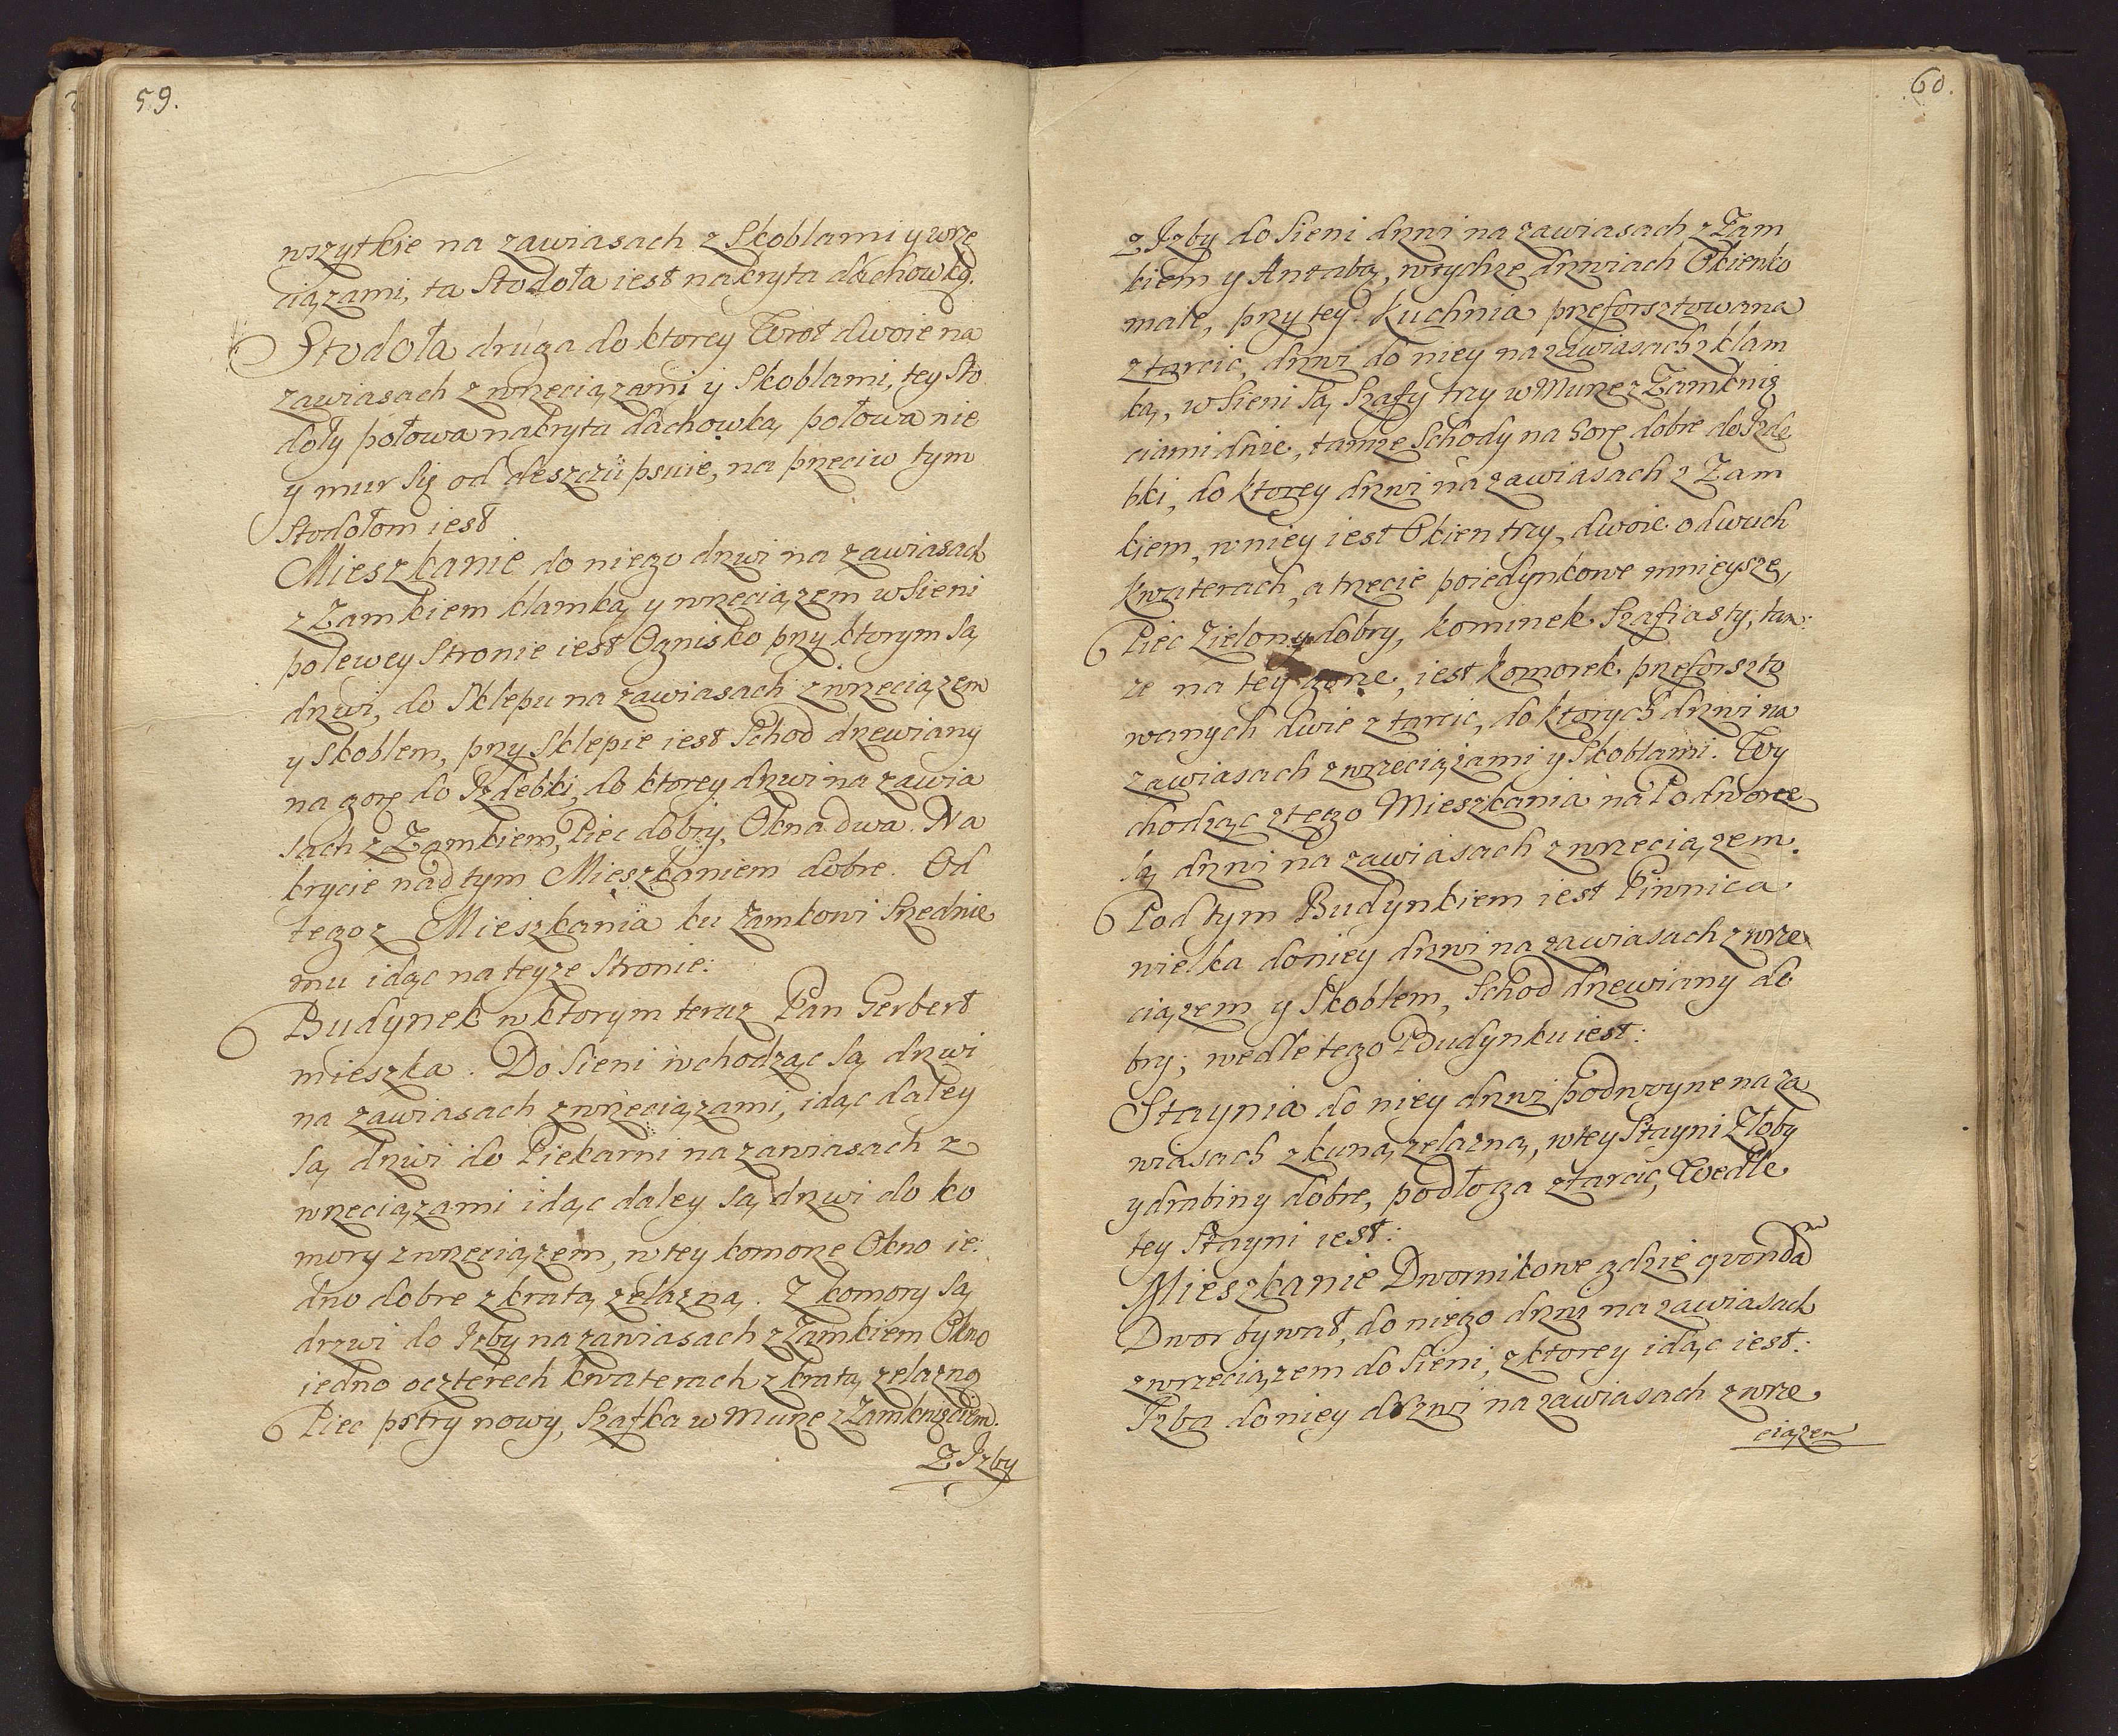 59.
wszytkie na zawiasach z Skoblami y wrze
ciązami, ta Stodoła iest nakryta dachowką.
Stodoła druga do ktorey Wrot dwoie na
zawiasach z wrzeciązami y Skoblami, tey Sto
doły połowa nakryta dachowką, połowa nie
y mur Się od deszczu psuie, na przeciw tym
Stodołom iest
Mieszkanie do niego drzwi na zawiasach
z Zamkiem klamką y wrzeciązem w Sieni
po lewey Stronie iest Ognisko przy ktorym Są
drzwi, do Sklepu na zawiasach z wrzeciązem
y Skoblem, przy Sklepie iest Schod drzewiany
na gorę do Izdebki, do ktorey drzwi na zawia
sach z Zamkiem, Piec dobry, Okna dwa. Na
krycie nad tym Mieszkaniem dobre. Od
tegoz Mieszkania ku Zamkowi Srzednie
mu idąc na teyze Stronie:
Budynek w ktorym teraz Pan Gerbert
mieszka. Do Sieni wchodząc Są drzwi
na zawiasach z wrzeciązami, idąc daley
Są drzwi do Piekarni na zawiasach z
wrzeciązami idąc daley Są drzwi do ko
mory z wrzeciązem, w tey komorze Okno ie:
dno dobre z kratą zelazną. Z komory Są
drzwi do Izby na zawiasach z Zamkiem Okno
iedno o czterech kwaterach z kratą zelazną
Piec pstry nowy, Szafka w Murze z Zamknięciem.
Z Izby
60.
Z Izby do Sieni drzwi na zawiasach z Zam
kiem y Antabą, w tychze drzwiach Okienko
małe, przy tey Kuchnia przeforsztowana
z tarcic, drzwi do niey na zawiasach z klam
ką, w Sieni Są Szafy trzy w Murze z Zamknię
ciami dwie, tamze Schody na Gorę dobre do Izde
bki, do ktorey drzwi na zawiasach z Zam
kiem, w niey iest Okien trzy, dwoie o dwuch
kwaterach, a trzecie poiedynkowe mnieysze,
Piec Zielony dobry, kominek Szafiasty, tam:
ze na tey gorze, iest komorek przeforszto
wanych dwie z tarcic, do ktorych drzwi na
zawiasach z wrzeciązami y Skoblami. Wy
chodząc z tego Mieszkania na Podworze
Są drzwi na zawiasach z wrzeciązem.
Pod tym Budynkiem iest Piwnica
wielka do niey drzwi na zawiasach z wrze
ciązem y Skoblem, Schod drzewiany do
bry; wedle tego Budynku iest:
Staynia do niey drzwi podwoyne na za
wiasach z kuną zelazną, w tey Stayni Złoby
y drabiny dobre, podłoga z tarcic, Wedle
tey Stayni iest:
Mieszkanie Dwornikowe gdzie qvondam
Dwor bywał, do niego drzwi na zawiasach
z wrzeciązem do Sieni, z ktorey idąc iest:
Izba do niey drzwi na zawiasach z wrze
ciązem